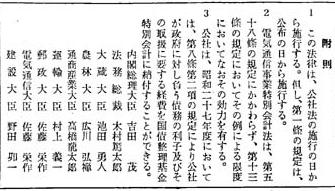 附　則
1　この法律は、公社法の施行の日か
ら施行する。但し、第一條の規定は、
公布の日から施行する。
2　電気通信事業特別会計法は、第五
十八條の規定にかかわらず、第十三
條の規定においてその例による限度
においてなおその効力を有する。
3　公社は、昭和二十七年度において
は、第八條第二項の規定により公社
が政府に対し負う債務の利子及びそ
の取扱に要する経費を国債整理基金
特別会計に納付することができる。
内閣総理大臣　吉田　茂
法務総裁　木村篤太郎
大蔵大臣　池田勇人
農林大臣　広川弘禅
通商産業大臣　高橋龍太郎
運輸大臣　村上義一
郵政大臣　佐藤榮作
電気通信大臣　佐藤榮作
建設大臣　野田卯一